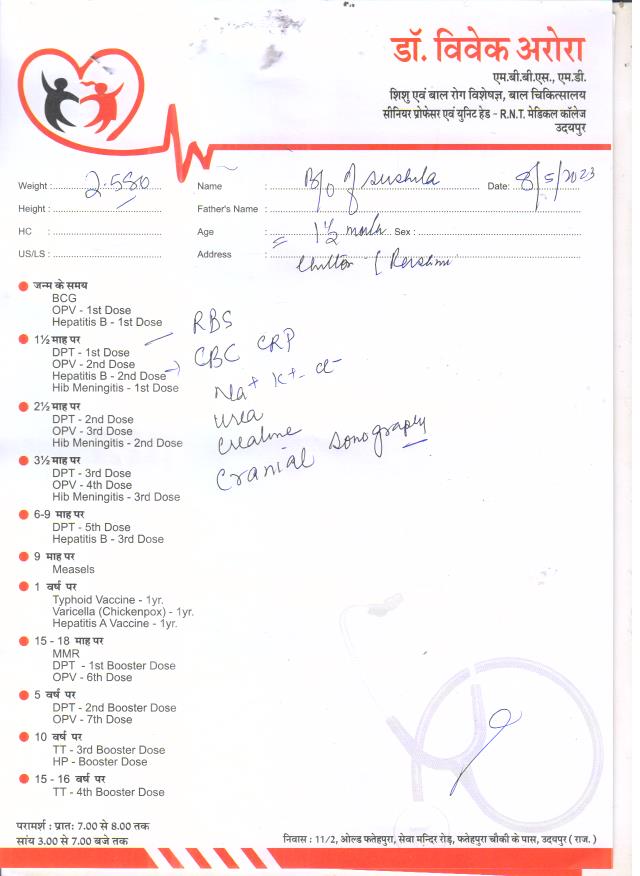 डॉ. विवेक अरोरा
एम.बी.बी.एस., एम.डी.
शिशु एवं बाल रोग विशेषज्ञ, बाल चिकित्सालय
सीनियर प्रोफेसर एवं युनिट हेड - R.N.T. मेडिकल कॉलेज
उदयपुर
Weight : 2.580 Name : B/o of Sushila Date: 8/5/2023
Height : Father's Name :
HC : Age : = 1½ month Sex :
US/LS : Address :
जन्म के समय
BCG
OPV - 1st Dose
Hepatitis B - 1st Dose
RBS
1½ माह पर
DPT - 1st Dose
OPV - 2nd Dose
Hepatitis B - 2nd Dose
Hib Meningitis - 1st Dose
CBC CRP
Na+ K+ Cl-
2½ माह पर
DPT - 2nd Dose
OPV - 3rd Dose
Hib Meningitis - 2nd Dose
urea
creatine
Cranial sonography
3½ माह पर
DPT - 3rd Dose
OPV - 4th Dose
Hib Meningitis - 3rd Dose
6-9 माह पर
DPT - 5th Dose
Hepatitis B - 3rd Dose
9 माह पर
Measels
1 वर्ष पर
Typhoid Vaccine - 1yr.
Varicella (Chickenpox) - 1yr.
Hepatitis A Vaccine - 1yr.
15 - 18 माह पर
MMR
DPT - 1st Booster Dose
OPV - 6th Dose
5 वर्ष पर
DPT - 2nd Booster Dose
OPV - 7th Dose
10 वर्ष पर
TT - 3rd Booster Dose
HP - Booster Dose
15 - 16 वर्ष पर
TT - 4th Booster Dose
परामर्श : प्रातः 7.00 से 8.00 तक
सांय 3.00 से 7.00 बजे तक
निवास : 11/2, ओल्ड फतेहपुरा, सेवा मन्दिर रोड़, फतेहपुरा चौकी के पास, उदयपुर ( राज. )